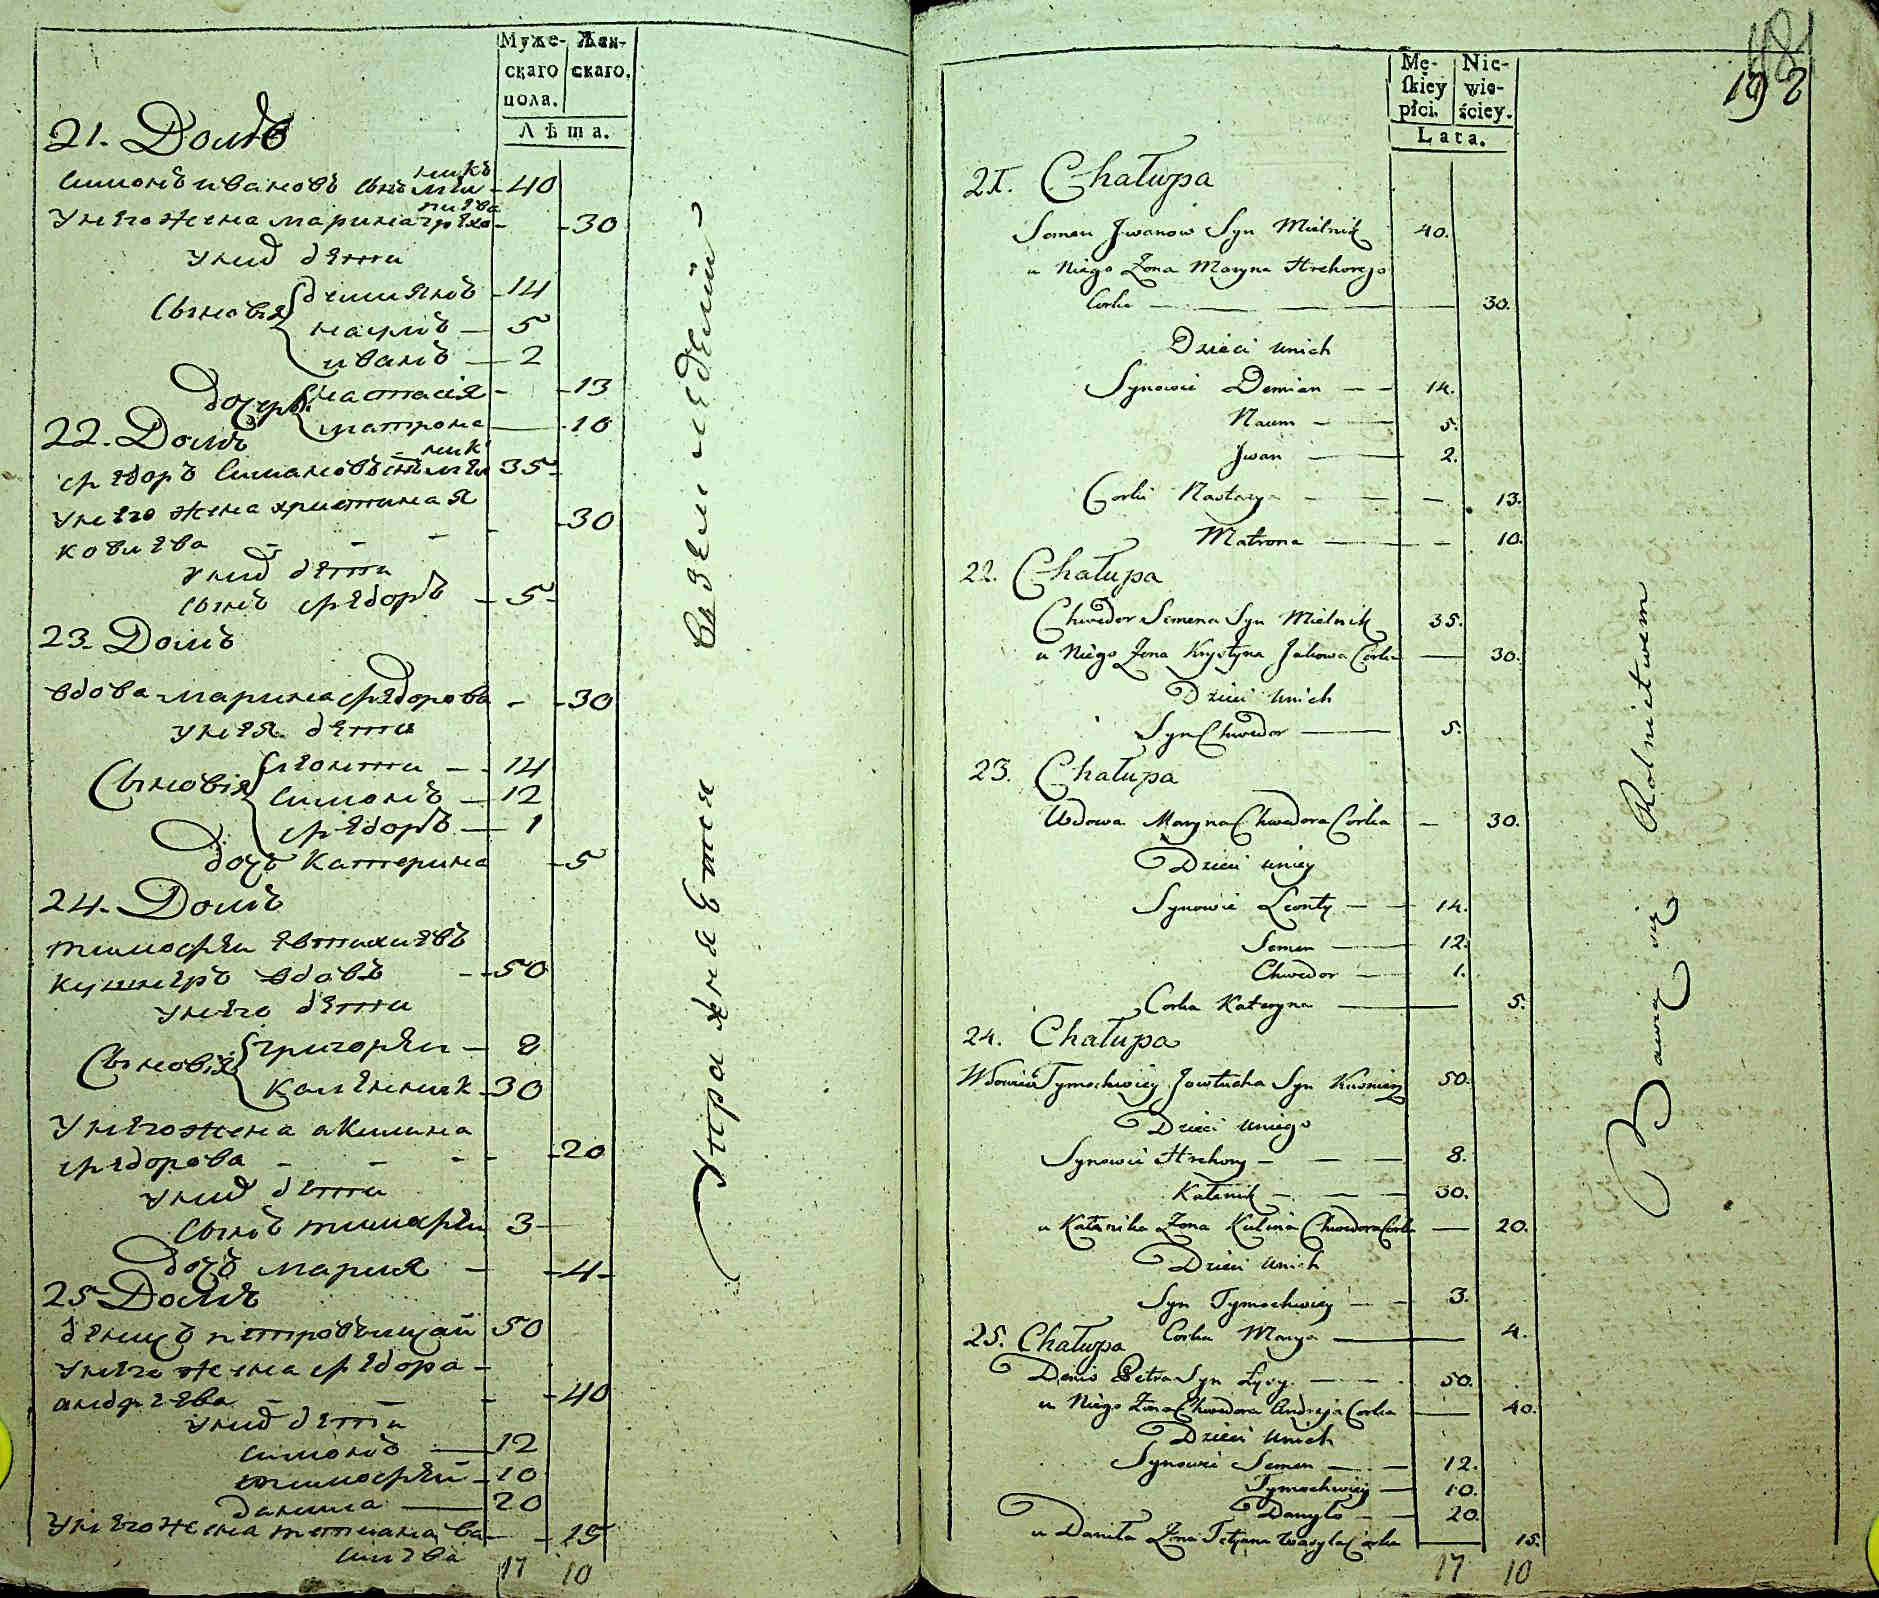 Муже- Жен-
скаго скаго.
пола.
Лѣта.
21. Домъ
симонъ ивановъ сынъ мѣл
никъ 40
унего жена марина грѣго
риева 30
уних дѣти
Сыновія демиянъ 14
наумъ 5
иванъ 2
дочери настасія 13
матрона 10
22. Домъ
ѳедоръ симановъ сынъ мѣл
ник 35
унего жена христина я
ковлева 30
уних дѣти
сынъ ѳедоръ 5
23. Домъ
вдова марина ѳедорова 30
унея дѣти
Сыновія леонти 14
симонъ 12
ѳедоръ 1
дочъ катерина 5
24. Домъ
тимоѳеи евтихиевъ
кушнеръ вдовъ 50
унего дѣти
Сыновія григореи 8
каленник 30
унего жена акилина
ѳедорова 20
уних дѣти
сынъ тимоѳеи 3
дочъ мария 4
25 Домъ
денисъ петровъ 50
унего жена ѳедора
андреева 40
уних дѣти
симонъ 12
тимоѳей 10
данила 20
унего жена татиана ва
силева 15
17 10
Упражняется вземледелии
192
Mę- Nie-
skiey wie-
płci. ściey.
Lata.
21. Chałupa
Semen Jwanow Syn Mielnik 40.
u Niego Żona Maryna Hrehorego
Corka 30.
Dzieci unich
Synowie Demian 14.
Naum 5.
Jwan 2.
Corki Nastazya 13.
Matrona 10.
22. Chałupa
Chwedor Semena Syn Mielnik 35.
u Niego Żona Krystyna Jakowa Corka 30.
Dzieci unich
Syn Chwedor 5.
23. Chałupa
Wdowa Maryna Chwedora Corka 30.
Dzieci uniey
Synowie Leonty 14.
Semen 12.
Chwedor 1.
Corka Kateryna 5.
24. Chałupa
Wdowiec Tymochwiey Jowtucha Syn Kusnierz 50.
Dzieci uniego
Synowie Hrehory 8.
Kalenik 30.
u Kalenika Żona Kulina Chwedora Corka 20.
Dzieci unich
Syn Tymochwiey 3.
Corka Marya 4.
25. Chałupa
Denis Petra Syn Łysy 50.
u Niego Żona Chwedora Andreja Corka 40.
Dzieci unich
Synowie Semen 12.
Tymochwiey 10.
Danyło 20.
u Daniła Żona Tetjana Wasyla Corka 15.
17 10
Bawią się Rolnictwem